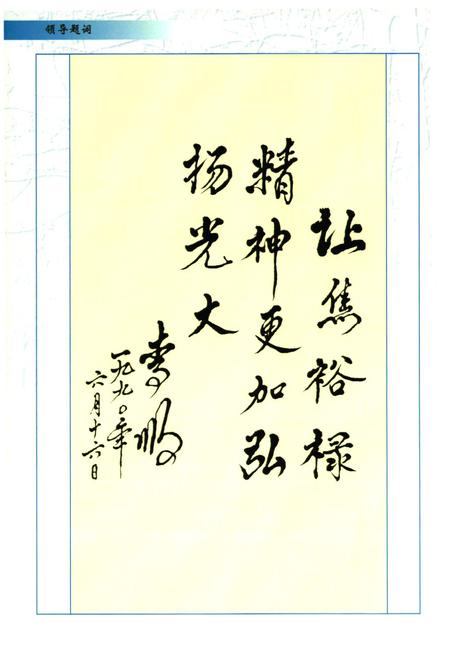 领导题词
让焦裕禄
精神更加弘
扬光大
李鹏
一九九〇年
六月十六日